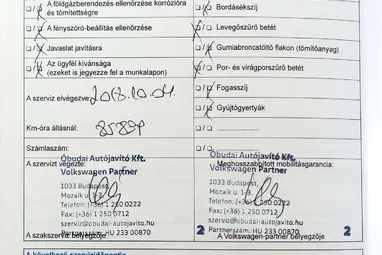 A földgázberendezés ellenőrzése korrózióra és tömítettségre
A fényszóró-beállítás ellenőrzése
Javaslat javításra
Az ügyfél kívánsága
(ezeket is jegyezze fel a munkalapon)
Bordásékszíj
Levegőszűrő betét
Gumiabroncstöltő flakon (tömítőanyag)
Por- és virágporszűrő betét
Fogasszíj
Gyújtógyertyák
A szerviz elvégezve: 2018.10.04.
Km-óra állásnál:
Számlaszám:
A szervizt végezte:
Óbudai Autójavító Kft.
Volkswagen Partner
1033 Budapest,
Mozaik u. 1-3.
Telefon: (+36) 1 250 0222
Fax: (+36) 1 250 0712
szerviz@obudai-autojavito.hu
Partnerszám: HU 233 00870
A szakszerviz bélyegzője
2
Meghosszabbított mobilitásgarancia:
Óbudai Autójavító Kft.
Volkswagen Partner
1033 Budapest,
Mozaik u. 1-3.
Telefon: (+36) 1 250 0222
Fax: (+36) 1 250 0712
szerviz@obudai-autojavito.hu
Partnerszám: HU 233 00870
A Volkswagen-partner bélyegzője
2
A következő szervizidőpontja